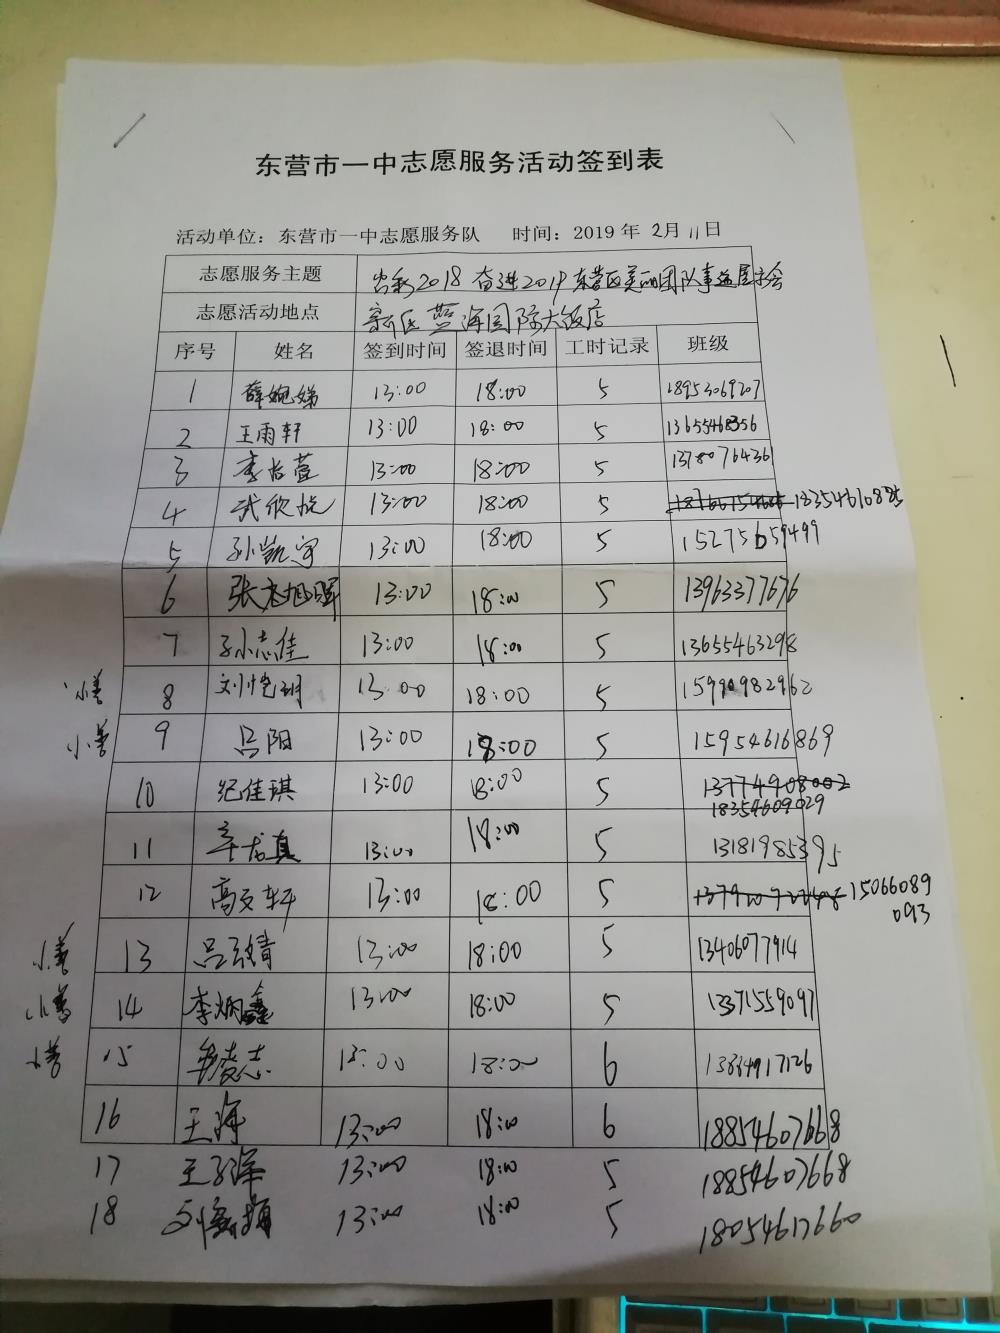 东营市一中志愿服务活动签到表
活动单位：东营市一中志愿服务队 时间：2019 年 2月 11日
志愿服务主题 出彩2018 奋进2019 东营区美丽团队事迹展示会
志愿活动地点 新区蓝海国际大饭店
序号 姓名 签到时间 签退时间 工时记录 班级
1 薛婉娣 13:00 18:00 5 18953069207
2 王雨轩 13:00 18:00 5 13655468356
3 李怡萱 13:00 18:00 5 13780764361
4 武欣悦 13:00 18:00 5 18354610885
5 孙凯宇 13:00 18:00 5 15275659499
6 张志旭晖 13:00 18:00 5 13963377676
7 孙志佳 13:00 18:00 5 13655463298
小善 8 刘恺玥 13:00 18:00 5 15990982962
小善 9 吕阳 13:00 18:00 5 15954616869
10 纪佳琪 13:00 18:00 5 13774908002
18354609029
11 辛龙真 13:00 18:00 5 13181985395
12 高文轩 13:00 18:00 5 15066089
093
小善 13 吕云靖 13:00 18:00 5 13406077914
小善 14 李炳鑫 13:00 18:00 5 13371559097
小善 15 凌志 13:00 18:00 6 13864917126
16 王海 13:00 18:00 6 18854607668
17 王子泽 13:00 18:00 5 18854607668
18 刘 13:00 18:00 5 18054617660